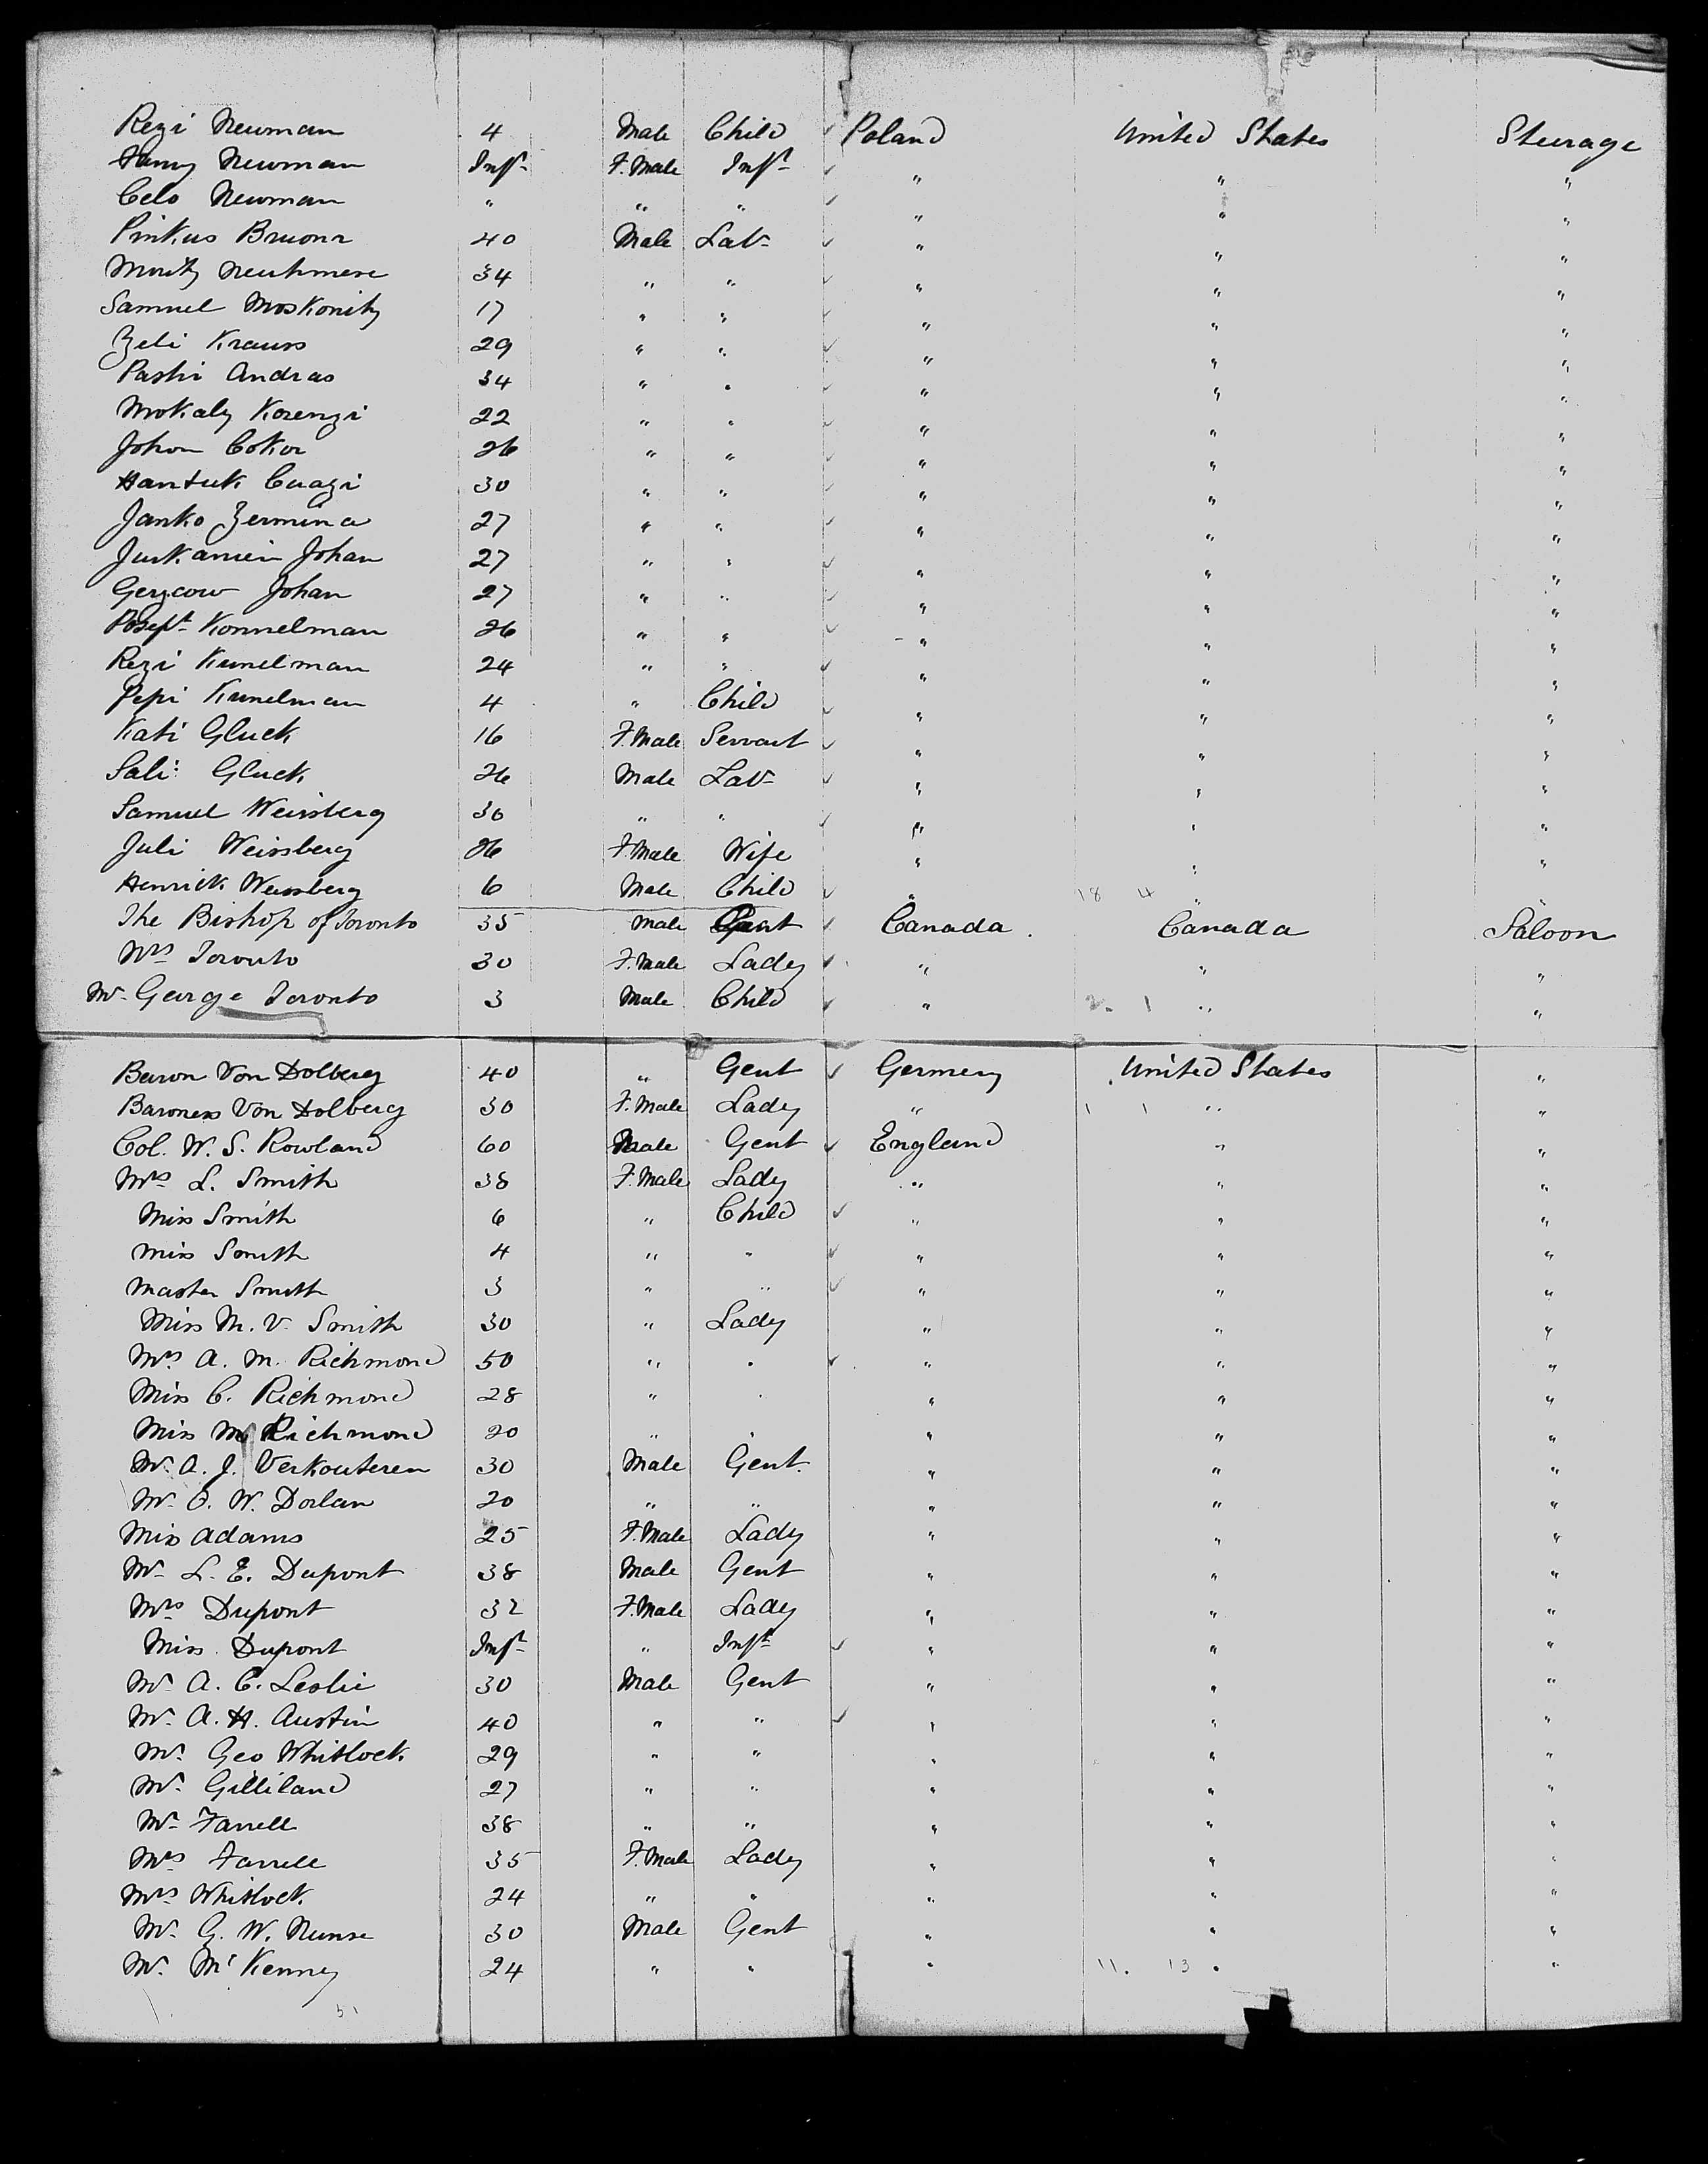 Rezi Newman 4 Male Child Poland United States Steerage
Fanny Newman Inft F.Male Inft " " "
Celo Newman " " " " " "
Pinkus 40 Male Lab " " "
34 " " " " "
Samuel Moskovitz 17 " " " " "
Zeli Krauss 29 " " " " "
Pashi Andras 34 " " " " "
22 " " " " "
26 " " " " "
30 " " " " "
Janko Zermina 27 " " " " "
Johan 27 " " " " "
Johan 27 " " " " "
Konnelman 26 " " " " "
Rezi Kunelman 24 " " " " "
Pepi Kunelman 4 " Child " " "
Kati Gluck 16 F.Male Servant " " "
Sali Gluck 26 Male Lab " " "
Samuel Weissberg 30 " " " " "
Juli Weissberg 26 F.Male Wife " " "
Henrick Weissberg 6 Male Child " 18 4 " "
The Bishop of Toronto 35 Male Gent Canada Canada Saloon
Mrs Toronto 30 F.Male Lady " " "
Mr George Toronto 3 Male Child " 2. 1 " "
Baron Von Dolberg 40 " Gent Germeny United States "
Baroness Von Dolberg 30 F.Male Lady " 1 1 " "
Col. W. S. Rowland 60 Male Gent England " "
Mrs L. Smith 38 F.Male Lady " " "
Miss Smith 6 " Child " " "
Miss Smith 4 " " " " "
Master Smith 3 " " " " "
Miss M. V. Smith 30 " Lady " " "
Mrs A. M. Richmond 50 " " " " "
Miss C. Richmond 28 " " " " "
Miss M Richmond 20 " " " " "
Mr A. J. Verkouteren 30 Male Gent. " " "
Mr O. W. Dorlan 20 " " " " "
Miss Adams 25 F.Male Lady " " "
Mr L. E. Dupont 38 Male Gent " " "
Mrs Dupont 32 F.Male Lady " " "
Miss Dupont Inft " Inft " " "
Mr A. C. Leslie 30 Male Gent " " "
Mr A. H. Austin 40 " " " " "
Mr Geo Whitlock 29 " " " " "
Mr Gilliland 27 " " " " "
Mr Farrell 38 " " " " "
Mrs Farrell 35 F.Male Lady " " "
Mrs Whitlock 24 " " " " "
Mr G. W. Nunse 30 Male Gent " " "
Mr McKenney 24 " " " 11. 13 " "
51